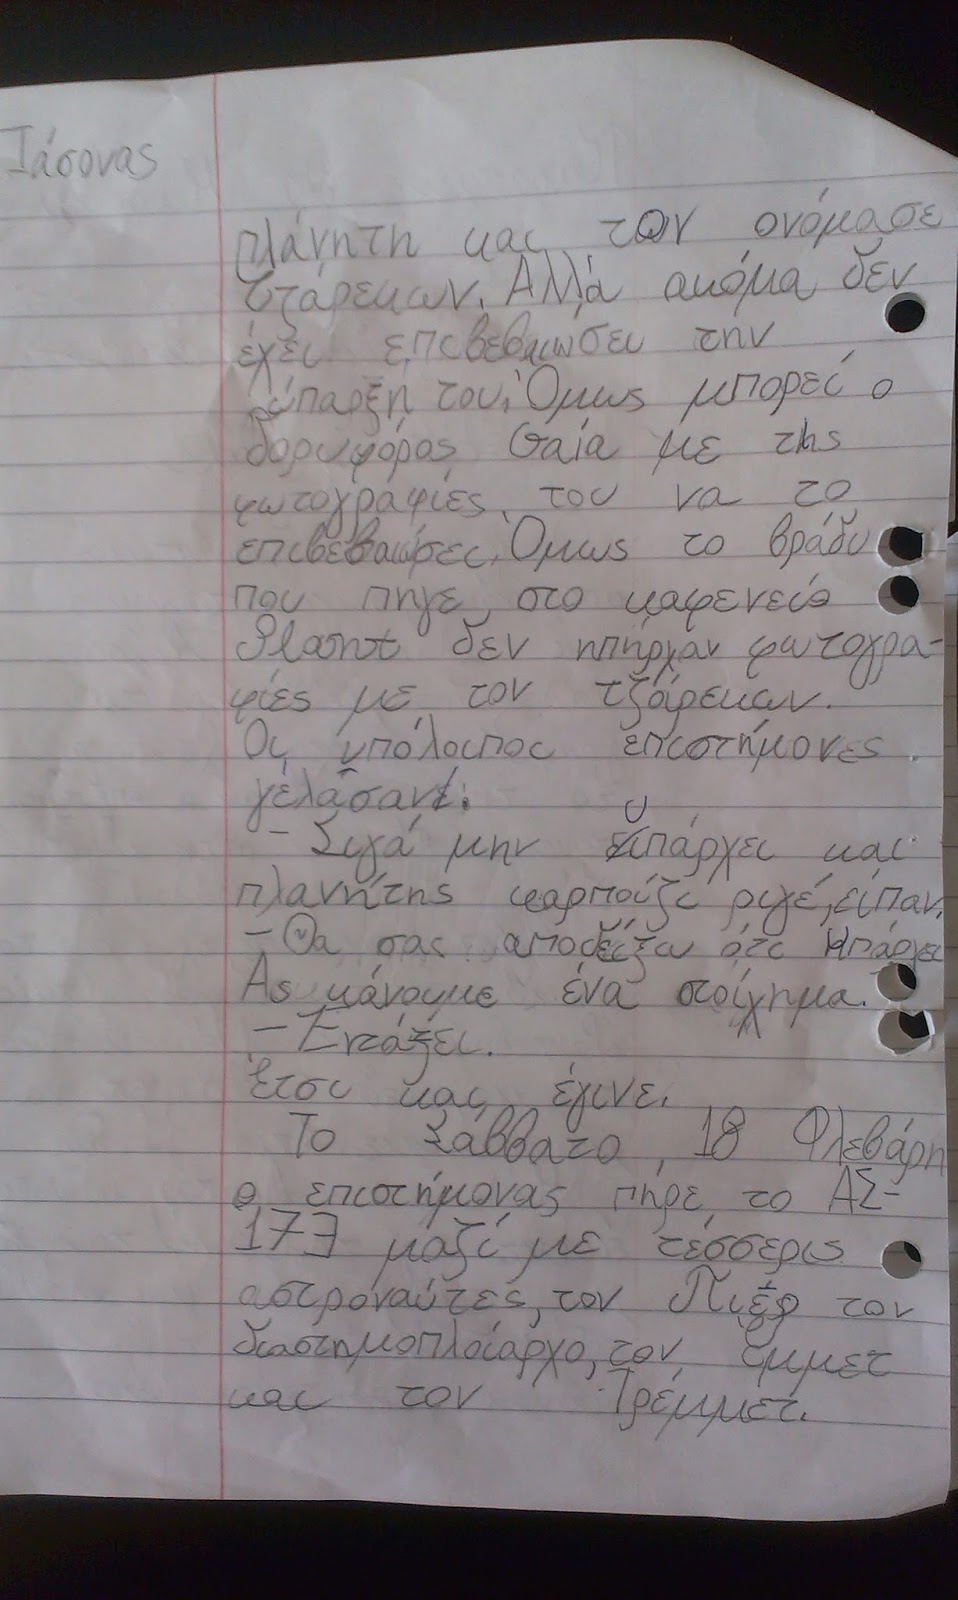 Ιάσονας
πλάνητη και τον ονόμασε
Τζάρεκων. Αλλά ακόμα δεν
έχει επιβεβαιώσει την
ύπαρξη του. Όμως μπορεί ο
δορυφόρος Γαία με τις
φωτογραφίες του να το
επιβεβαιώσει. Όμως το βράδυ
που πήγε στο καφενείο
Planet δεν ηπήρχαν φωτογρα-
φίες με τον τζάρεκων.
Οι υπόλοιποι επιστήμονες
γέλασαν.
- Σιγά μην υπάρχει και
πλανήτης καρπούζι ριγέ, είπαν.
- Θα σας αποδείξω ότι υπάρχει
Ας κάνουμε ένα στοίχημα.
- Εντάξει.
Έτσι και έγινε.
Το Σάββατο, 18 Φλεβάρη
ο επιστήμονας πήρε το ΑΣ-
173 μαζί με τέσσερις
αστροναύτες, τον Πιέρ τον
διαστημοπλοίαρχο, τον Έμμετ
και τον Τρέμμετ.